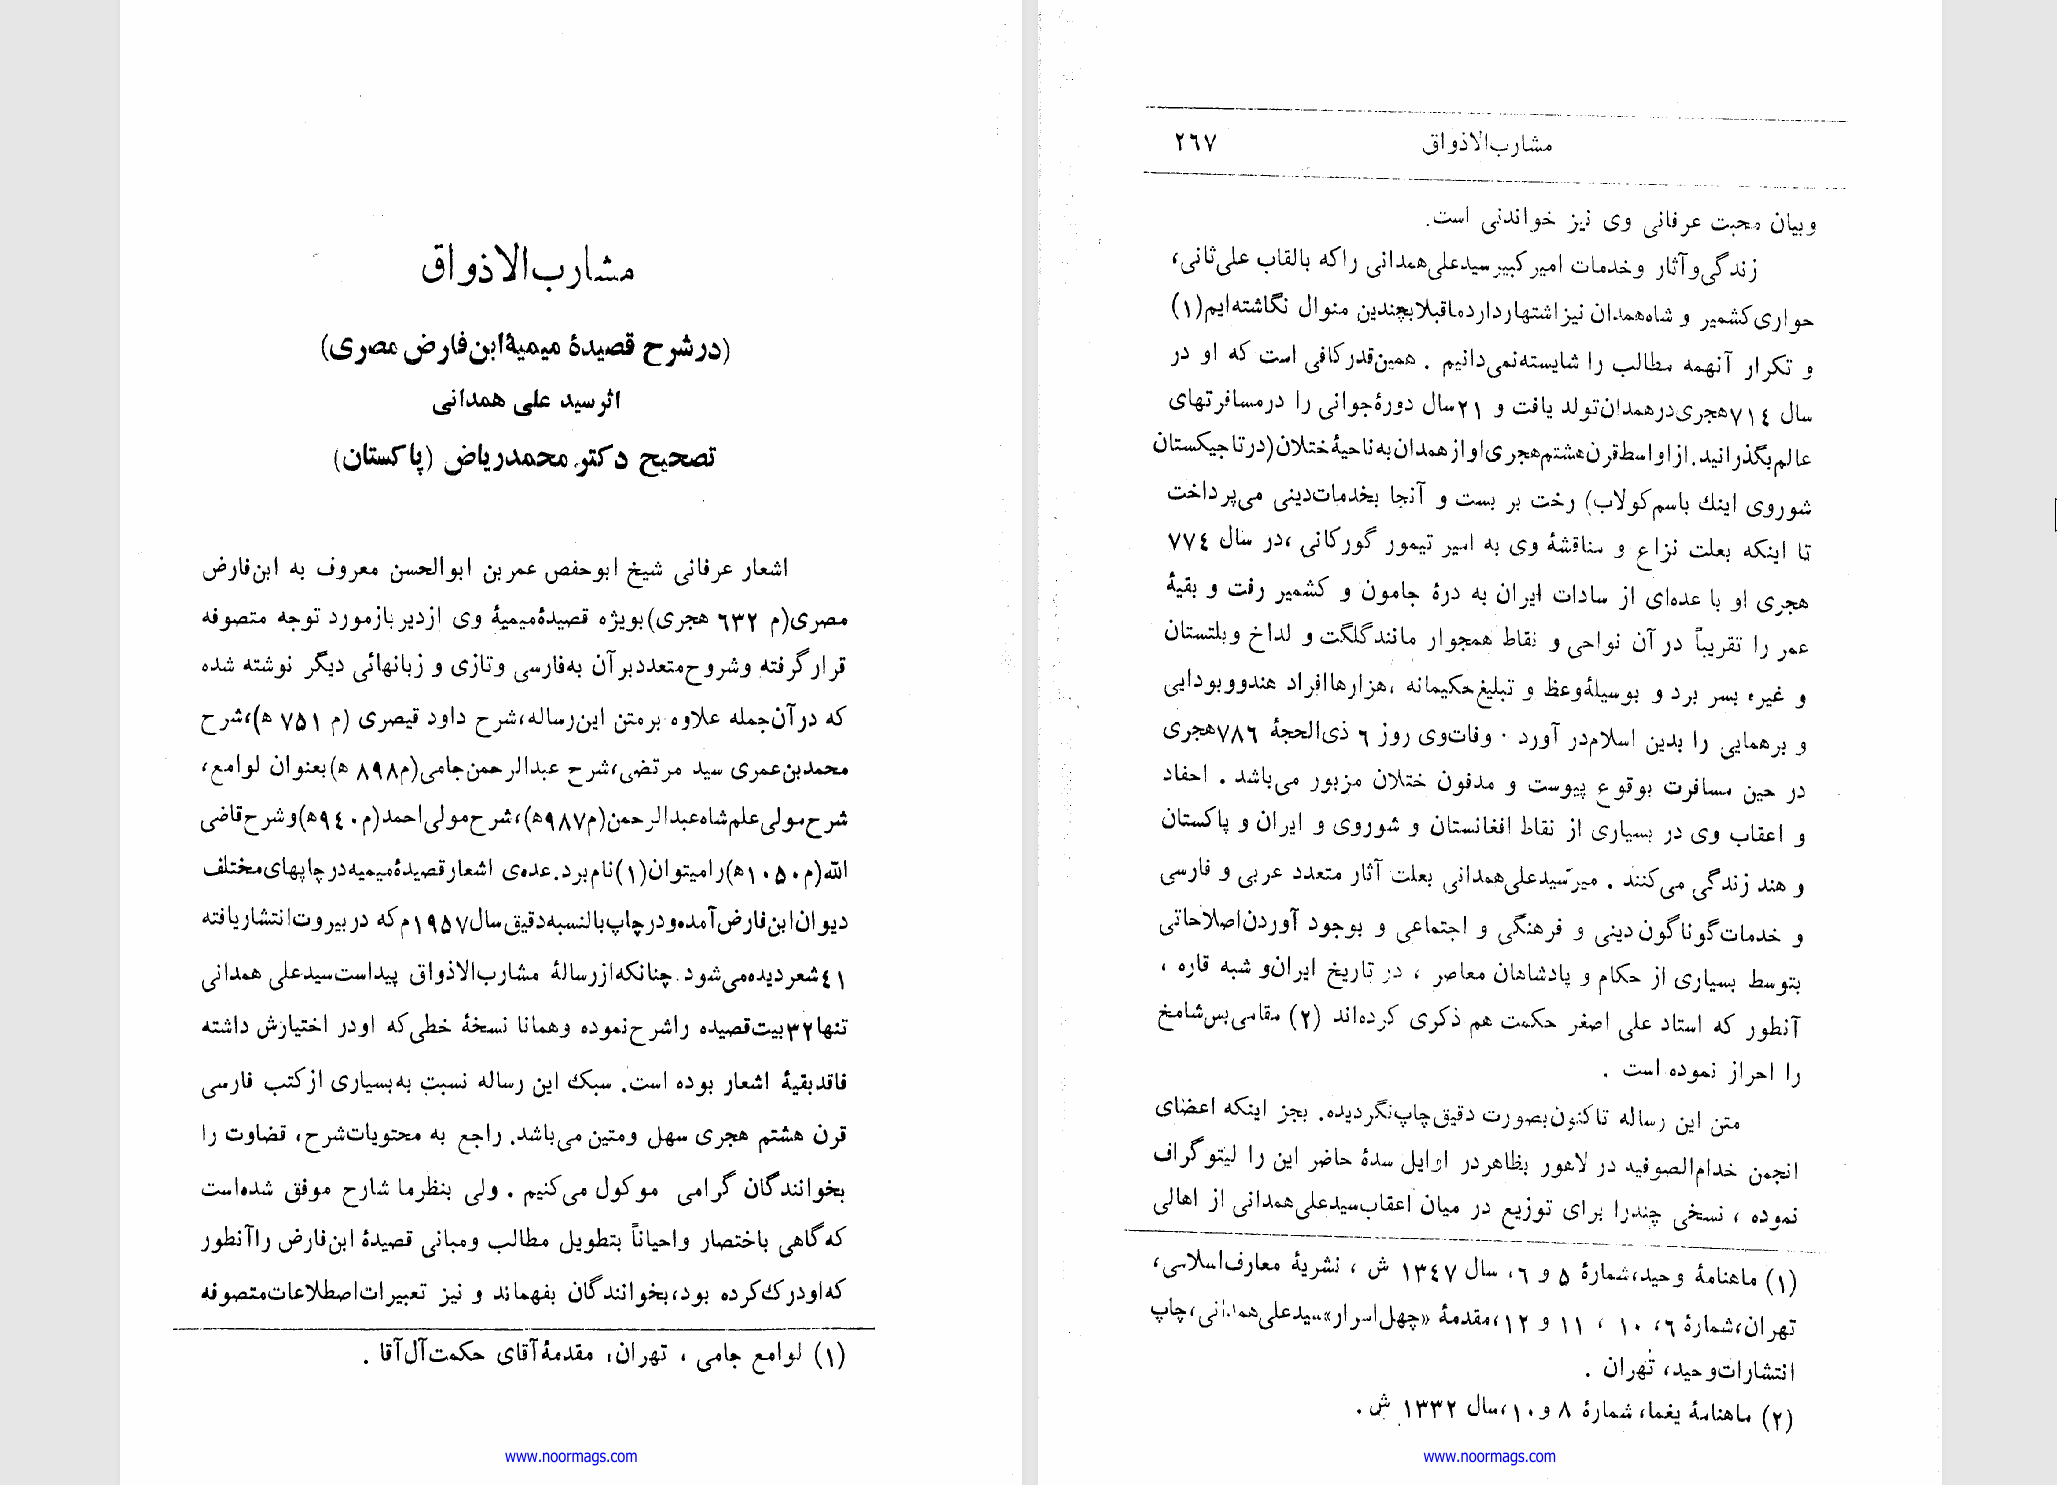 مشارب‌الاذواق
(در شرح قصیدهٔ میمیهٔ ابن‌فارض مصری)
اثر سید علی همدانی
تصحیح دکتر محمد ریاض (پاکستان)
اشعار عرفانی شیخ ابوحفص عمربن ابوالحسن معروف به ابن‌فارض
مصری(م ٦٣٢ هجری)بویژه قصیدهٔ میمیهٔ وی ازدیر بازمورد توجه متصوفه
قرار گرفته وشروح متعددبر آن به‌فارسی وتازی و زبانهائی دیگر نوشته شده
که در آن‌جمله علاوه برمتن این‌رساله،شرح داود قیصری (م ٧٥١ ه)،شرح
محمدبن‌عمری سید مرتضی،شرح عبدالرحمن‌جامی(م٨٩٨ ه)بعنوان لوامع،
شرح‌مولی علم‌شاه‌عبدالرحمن(م٩٨٧ه)،شرح‌مولی‌احمد(م٩٤٠ه)وشرح‌قاضی
الله(م١٠٥٠ه)رامیتوان(١)نام‌برد.عده‌ی اشعارقصیدهٔ‌میمیه‌در چاپهای‌مختلف
دیوان‌ابن‌فارض‌آمده‌ودرچاپ‌بالنسبه‌دقیق‌سال١٩٥٧م‌که دربیروت‌انتشاریافته
٤١شعردیده‌می‌شود.چنانکه‌ازرسالهٔ مشارب‌الاذواق پیداست‌سیدعلی همدانی
تنها٣٢بیت‌قصیده راشرح‌نموده وهمانا نسخهٔ خطی‌که اودر اختیارش داشته
فاقدبقیهٔ اشعار بوده است. سبک این رساله نسبت به‌بسیاری از کتب فارسی
قرن هشتم هجری سهل ومتین می‌باشد. راجع به محتویات‌شرح، قضاوت را
بخوانندگان گرامی موکول می‌کنیم . ولی بنظرما شارح موفق شده‌است
که گاهی باختصار واحیاناً بتطویل مطالب ومبانی قصیدهٔ ابن‌فارض راآنطور
که‌اودرک‌کرده بود،بخوانندگان بفهماند و نیز تعبیرات‌اصطلاعات‌متصوفه
(١) لوامع جامی ، تهران، مقدمهٔ‌آقای حکمت‌آل‌آقا .
www.noormags.com
مشارب‌الاذواق
٢٦٧
وبیان محبت عرفانی وی نیز خواندنی است.
زندگی‌وآثار وخدمات امیر کبیرسیدعلی‌همدانی راکه بالقاب علی‌ثانی،
حواری‌کشمیر و شاه‌همدان نیزاشتهاردارد‌ماقبلا‌بچندین منوال نگاشته‌ایم(١)
و تکرار آنهمه مطالب را شایسته‌نمی‌دانیم . همین‌قدرکافی است که او در
سال ٧١٤هجری‌درهمدان‌تولد یافت و ٢١سال دورهٔ‌جوانی را درمسافرتهای
عالم‌بگذرانید.ازاواسط‌قرن‌هشتم‌هجری‌اوازهمدان‌به‌ناحیهٔ‌ختلان(درتاجیکستان
شوروی اینک باسم‌کولاب) رخت بر بست و آنجا بخدمات‌دینی می‌پرداخت
تا اینکه بعلت نزاع و مناقشهٔ وی به امیر تیمور گورکانی ،در سال ٧٧٤
هجری او با عده‌ای از سادات ایران به درهٔ جامون و کشمیر رفت و بقیهٔ
عمر را تقریباً در آن نواحی و نقاط همجوار مانندگلگت و لداخ وبلتستان
و غیره بسر برد و بوسیلهٔ‌وعظ و تبلیغ‌حکیمانه ،هزارهاافراد هندووبودایی
و برهمایی را بدین اسلام‌در آورد . وفات‌وی روز ٦ ذی‌الحجهٔ ٧٨٦هجری
در حین مسافرت بوقوع پیوست و مدفون ختلان مزبور می‌باشد . احفاد
و اعقاب وی در بسیاری از نقاط افغانستان و شوروی و ایران و پاکستان
و هند زندگی می‌کنند . میرسیدعلی‌همدانی بعلت آثار متعدد عربی و فارسی
و خدمات‌گوناگون دینی و فرهنگی و اجتماعی و بوجود آوردن‌اصلاحاتی
بتوسط بسیاری از حکام و پادشاهان معاصر ، در تاریخ ایران‌و شبه قاره ،
آنطور که استاد علی اصغر حکمت هم ذکری کرده‌اند (٢) مقامی‌بس‌شامخ
را احراز نموده است .
متن این رساله تاکنون‌بصورت دقیق‌چاپ‌نگردیده. بجز اینکه اعضای
انجمن خدام‌الصوفید در لاهور بظاهردر اوایل سدهٔ حاضر این را لیتوگراف
نموده ، نسخی چندرا برای توزیع در میان اعقاب‌سیدعلی‌همدانی از اهالی
(١) ماهنامهٔ وحید،شمارهٔ ٥ و ٦، سال ١٣٤٧ ش ، نشریهٔ معارف‌اسلامی،
تهران،شمارهٔ ٦، ١٠ ، ١١ و ١٢،مقدمهٔ «چهل‌اسرار»سیدعلی‌همدانی،چاپ
انتشارات‌وحید، تهران .
(٢) ماهنامهٔ یغما، شمارهٔ ٨ و١٠،سال ١٣٣٢ ش .
www.noormags.com